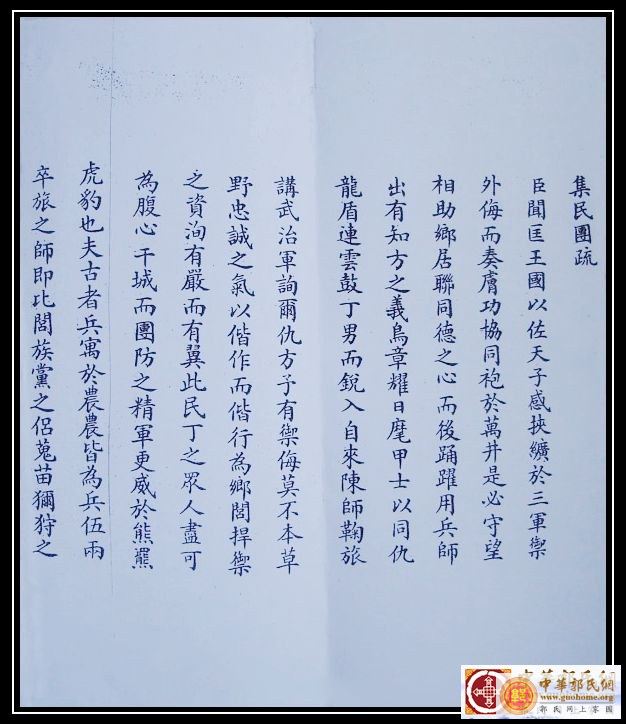 集民團疏
臣聞匡王國以佐天子感挾纊於三軍禦
外侮而奏膚功協同袍於萬井是必守望
相助鄉居聯同德之心而後踊躍用兵師
出有知方之義鳥章耀日麾甲士以同仇
龍盾連雲鼓丁男而銳入自來陳師鞠旅
講武治軍詢爾仇方予有禦侮莫不本草
野忠誠之氣以偕作而偕行為鄉閭捍禦
之資洵有嚴而有翼此民丁之眾人盡可
為腹心干城而團防之精軍更威於熊羆
虎豹也夫古者兵寓於農農皆為兵伍兩
卒旅之師即比閭族黨之侶蒐苗獮狩之
中華郭氏網
www.guohome.org
郭氏網上家園